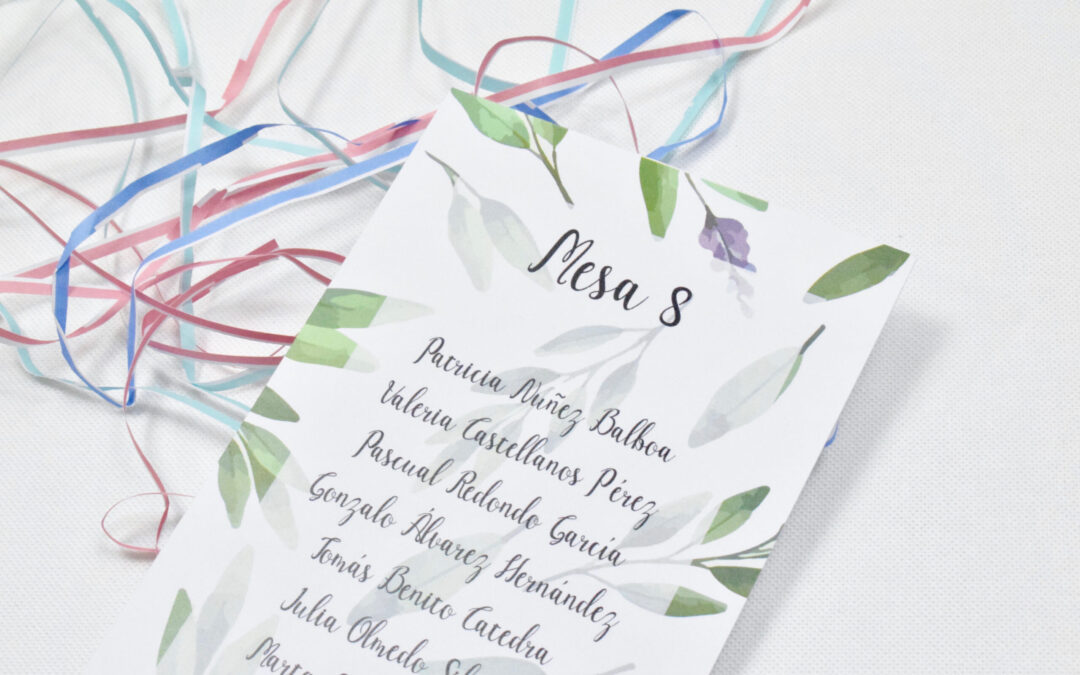 Mesa 8
Patricia Nuñez Balboa
Valeria Castellanos Pérez
Pascual Redondo García
Gonzalo Álvarez Hernández
Tomás Benito Catedra
Julia Olmedo